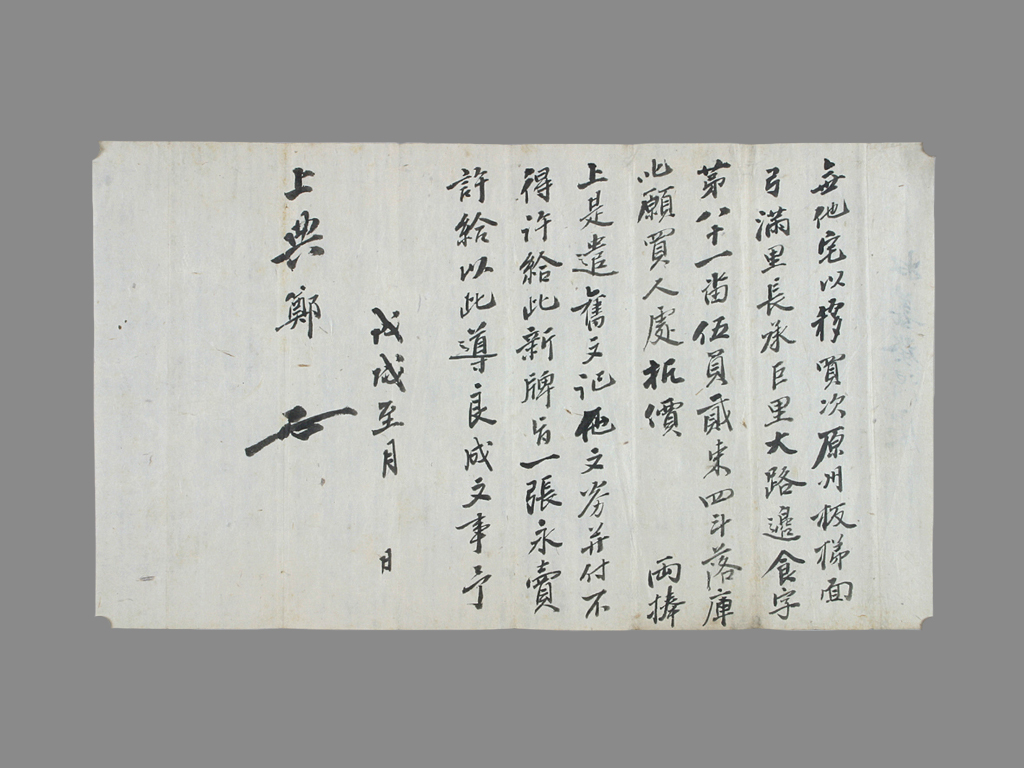 無他宅以移買次原州板梯面
弓滿里長承巨里大路邊食字
第八十一畓伍員貳束四斗落庫
願買人處折價 兩捧
上是遣舊文記他文券并付不
得許給此新牌旨一張永賣
許給以此導良成文事予
戊戌至月 日
上典鄭